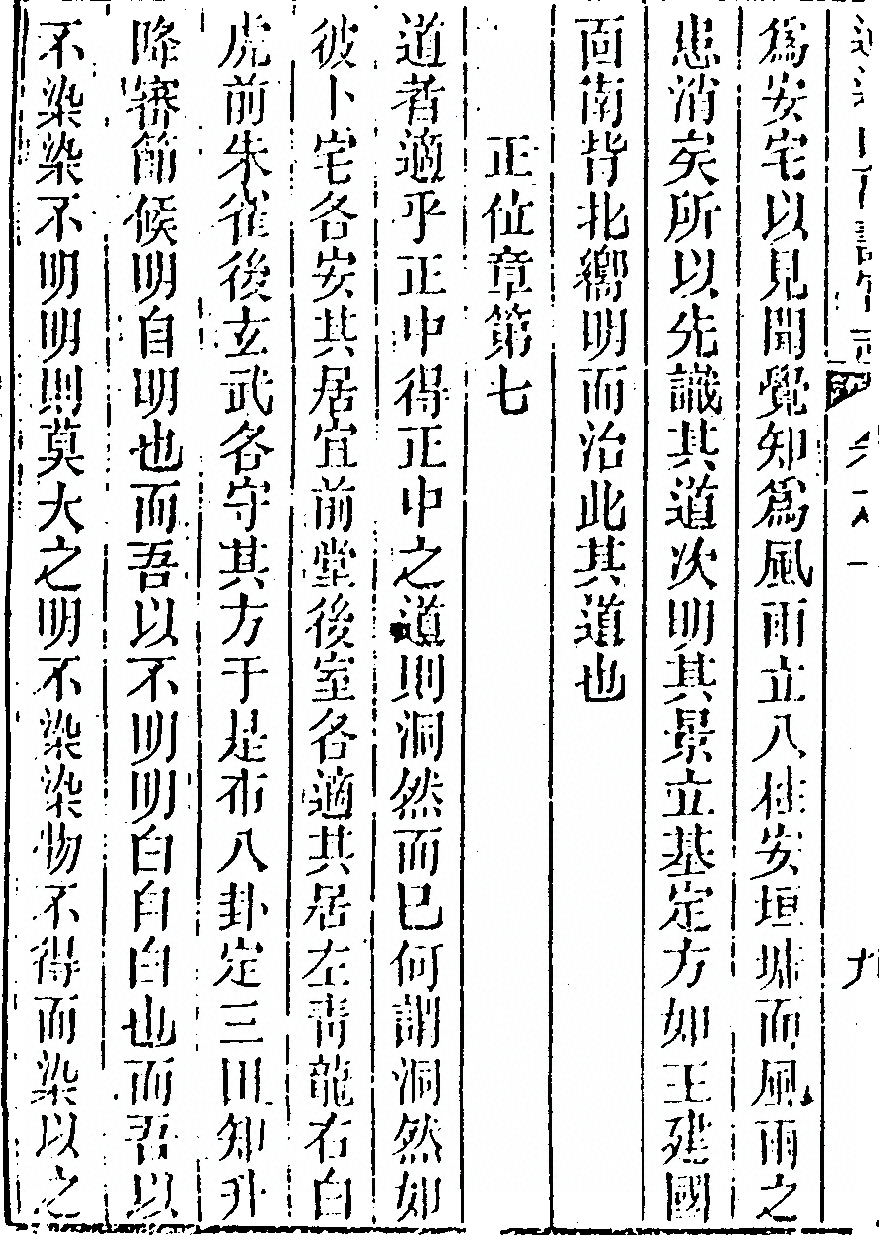 爲安宅以見聞覺知爲風雨立八柱安垣墉而風雨之
患消矣所以先識其道次明其景立基定方如王建國
面南背北嚮明而治此其道也
正位章第七
道者適乎正中得正中之道則洞然而已何謂洞然如
彼卜宅各安其居宜前堂後室各適其居左靑龍右白
虎前朱雀後玄武各守其方于是布八卦定三田知升
降審節候明自明也而吾以不明明白自白也而吾以
不染染不明明則莫大之明不染染物不得而染以之